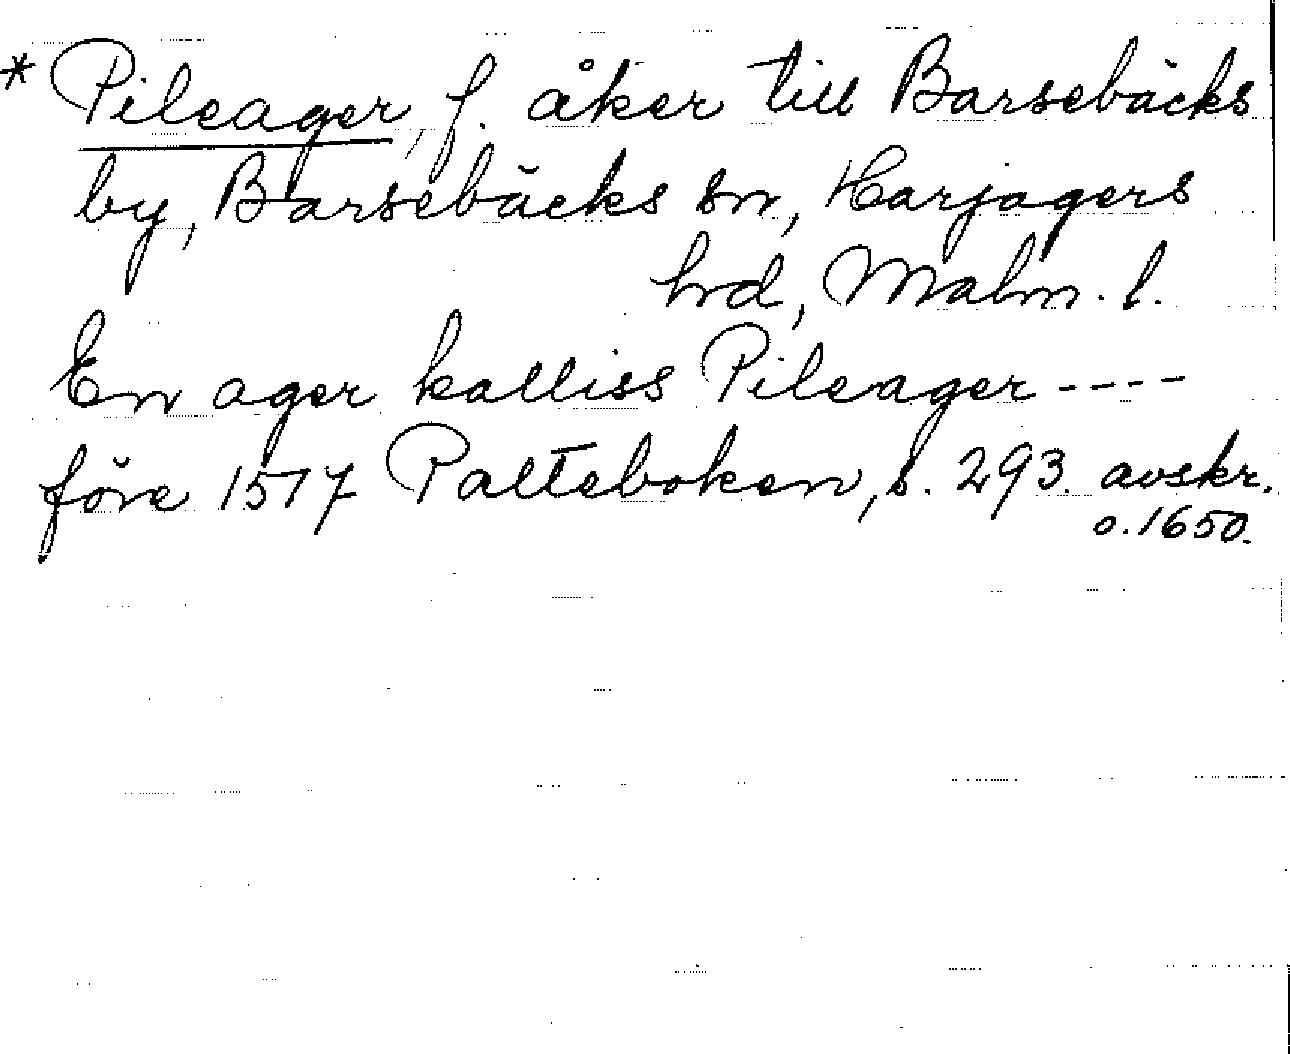 * Pileager, f. åker till Barsebäcks
by, Barsebäcks sn, Harjagers
hrd, Malm. l.
En ager kalliss Pileager ----
före 1577 Palteboken, s. 293. avskr.
o. 1650.